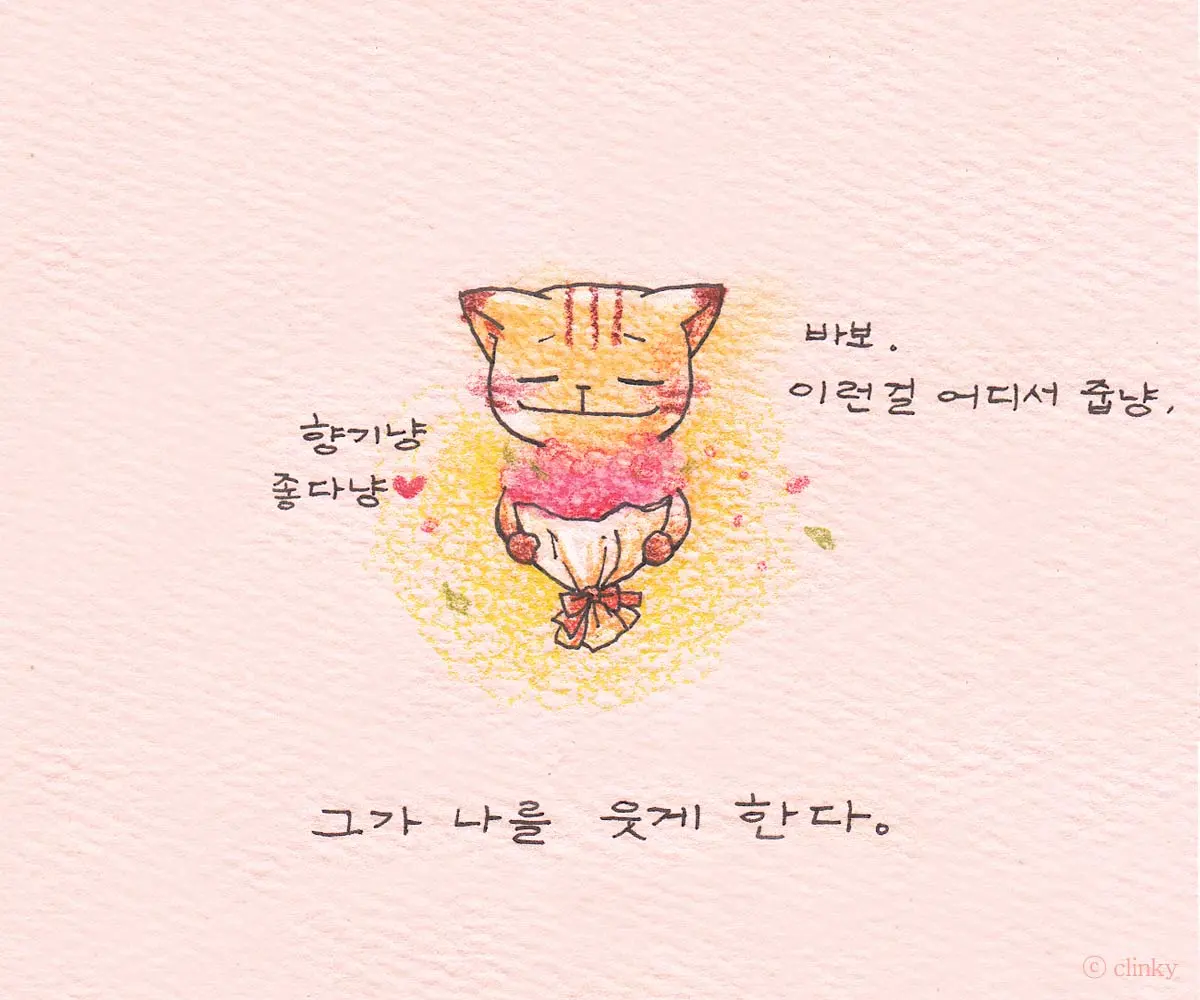 바보.
이런걸 어디서 줍냥,
향기냥
좋다냥♥
그가 나를 웃게 한다.
ⓒ clinky